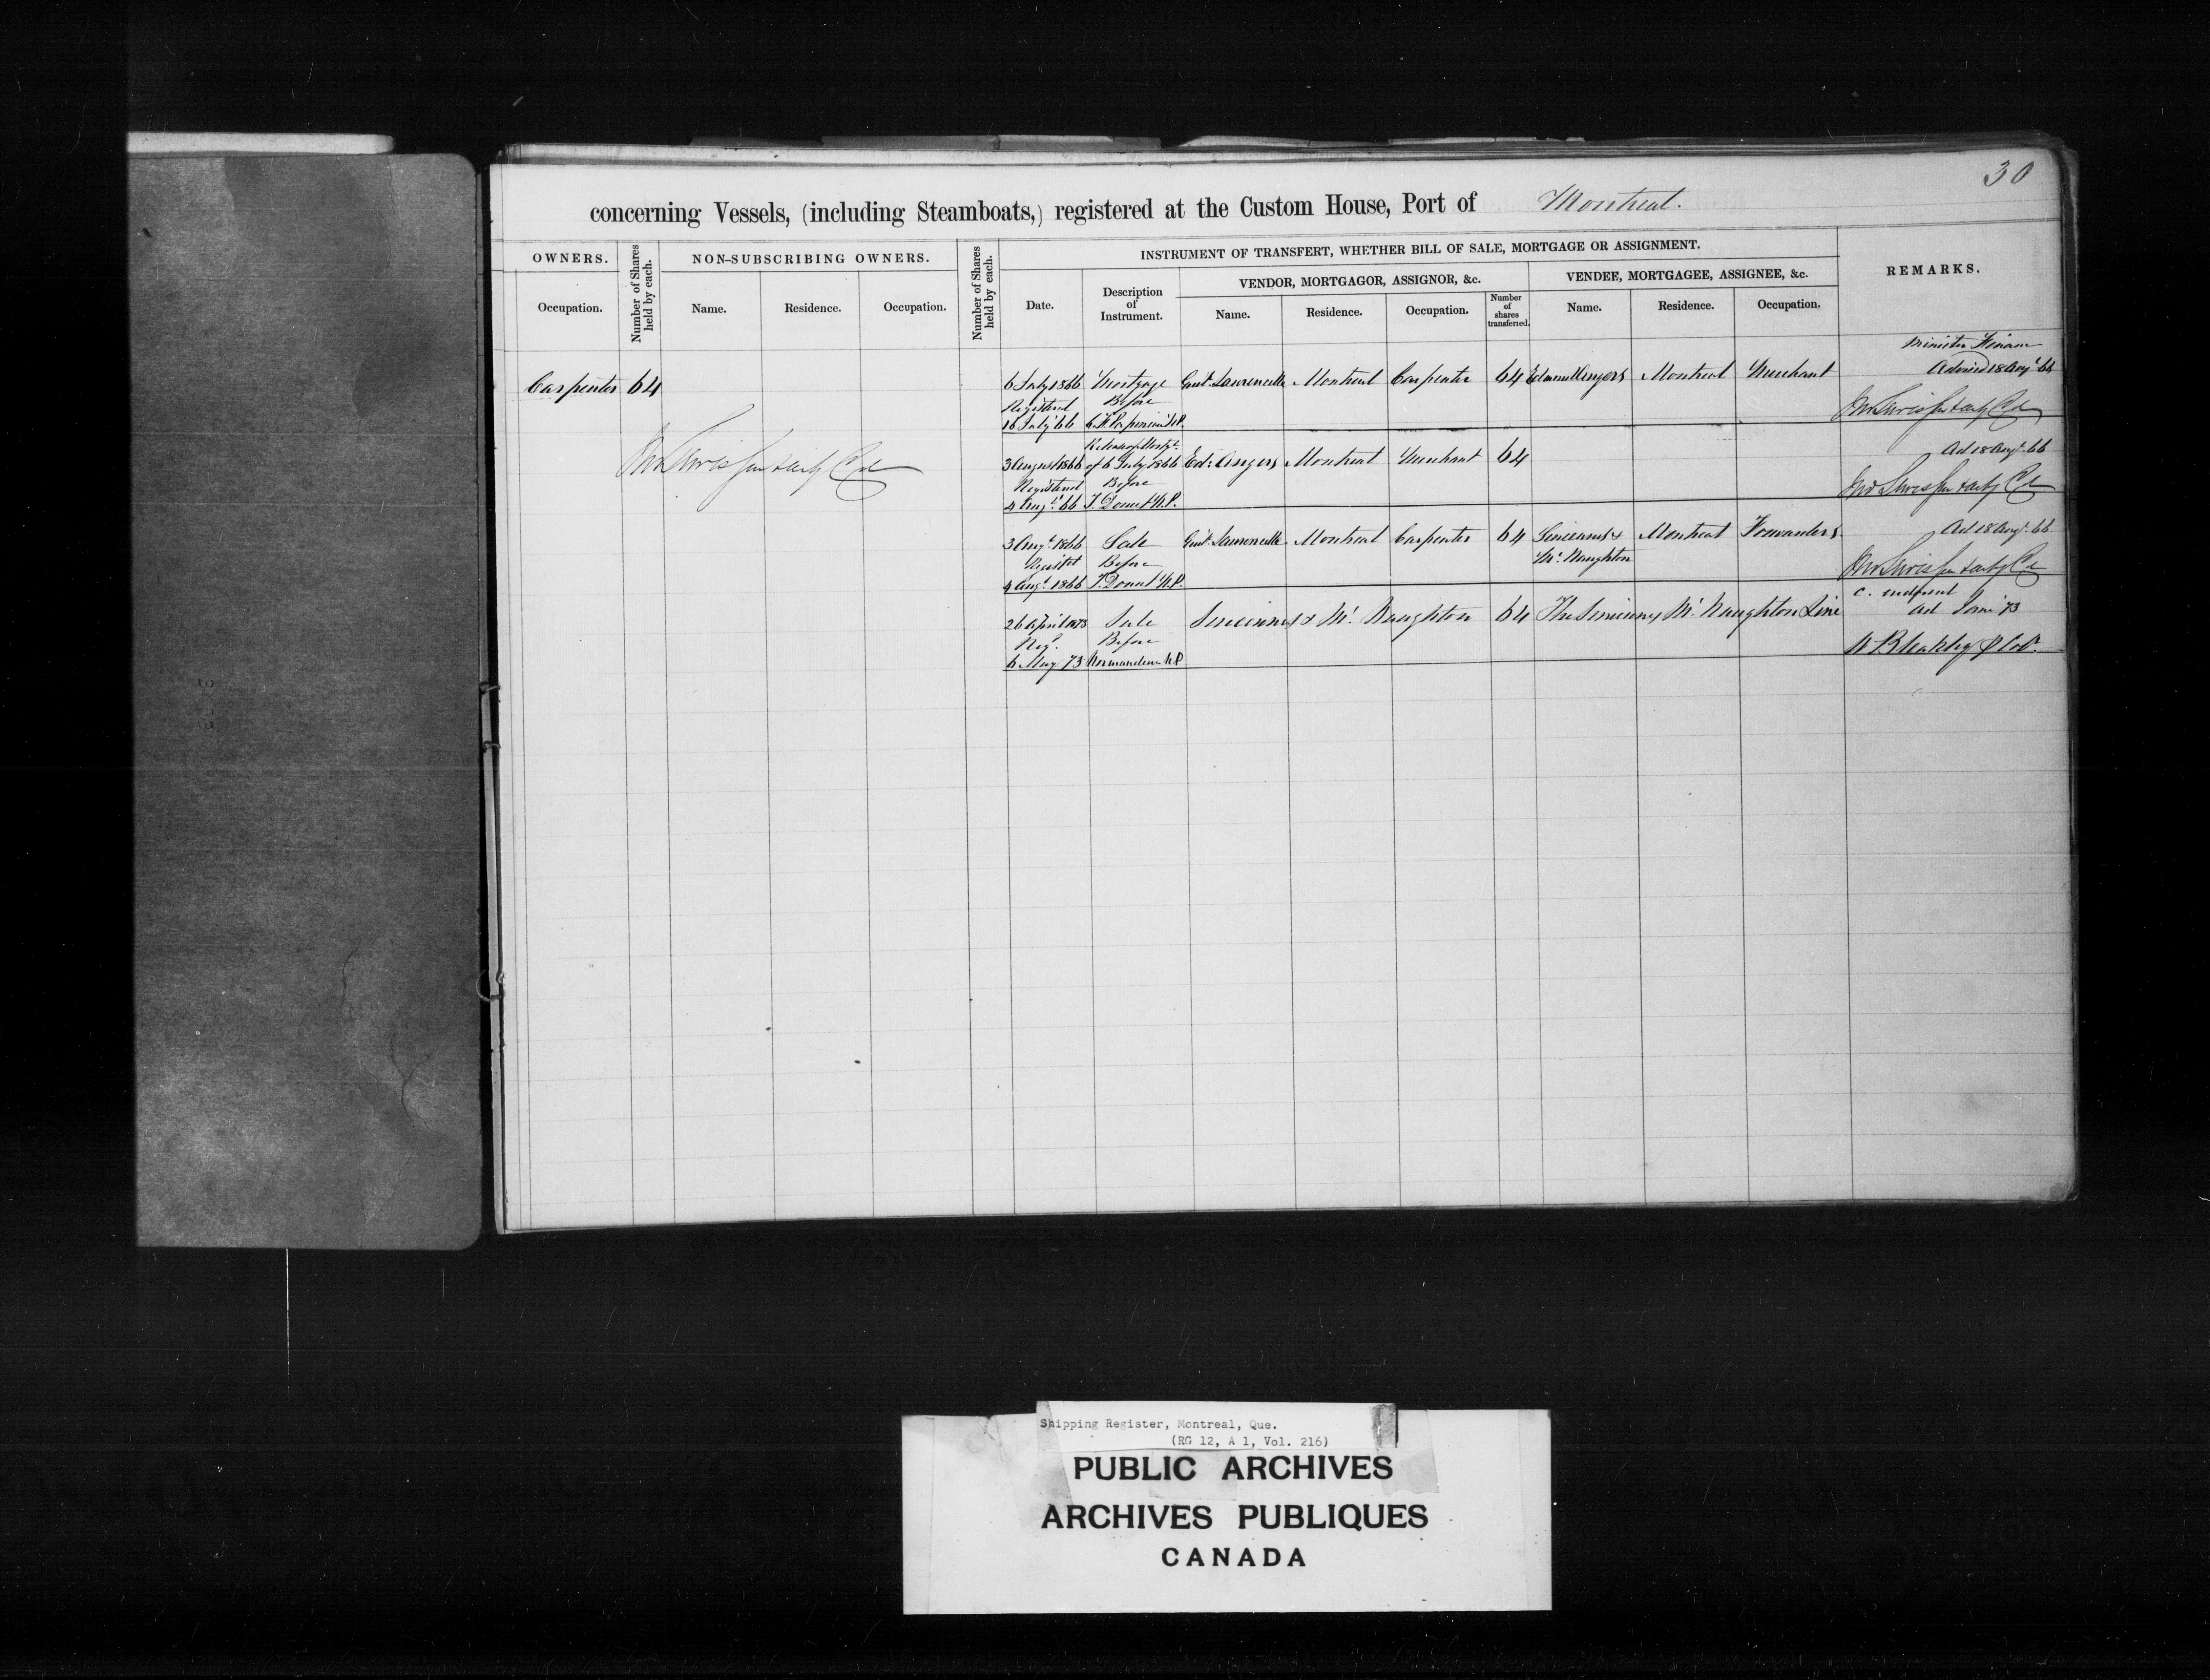 30
concerning Vessels, (including Steamboats,) registered at the Custom House, Port of Montreal.
OWNERS.
Number of Shares held by each.
NON-SUBSCRIBING OWNERS.
Number of Shares held by each.
INSTRUMENT OF TRANSFERT, WHETHER BILL OF SALE, MORTGAGE OR ASSIGNMENT.
REMARKS.
VENDOR, MORTGAGOR, ASSIGNOR, &c.
VENDEE, MORTGAGEE, ASSIGNEE, &c.
Occupation.
Name.
Residence.
Occupation.
Date.
Description of Instrument.
Name.
Residence.
Occupation.
Number of shares transferred.
Name.
Residence.
Occupation.
Minister Finance
Carpenter 64 6 July 1866 Mortgage Laurencelle Montreal Carpenter 64 Angers Montreal Merchant Advised 18 Augt 66
Registered Before
16 July 66 N.P.
Release of Mortge
3 August 1866 of 6 July 1866 Ed: Angers Montreal Merchant 64 Ad 18 Augt 66
Registered Before
4 Augt 66 T. Doucet N.P.
3 Augt 1866 Sale Laurencelle Montreal Carpenter 64 Sincennes & Montreal Forwarders Ad 18 Augt 66
Before Mc Naughton
4 Augt 1866 T. Doucet N.P.
26 April 1873 Sale Sincennes & Mc Naughton 64 The Sincennes Mc Naughton Line ad 73
Reg. Before
6 May 73 Normandeau N.P. Bleakley
Shipping Register, Montreal, Que.
(RG 12, A 1, Vol. 216)
PUBLIC ARCHIVES
ARCHIVES PUBLIQUES
CANADA